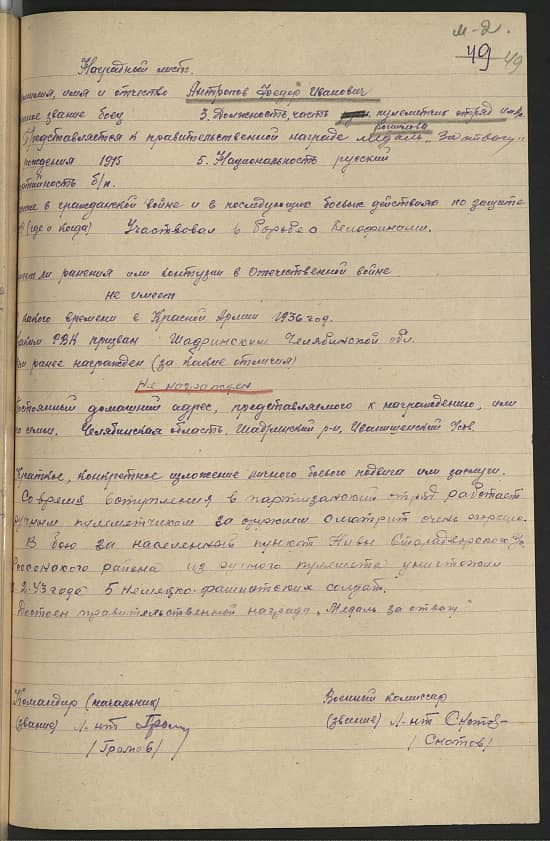 м-2.
49 49
Наградной лист.
фамилия, имя и отчество Антропов Федор Иванович
ное звание боец 3. Должность, часть пулеметчик отряд им.
Представляется к правительственной награде медаль „За отвагу"
рождения 1915 5. Национальность русский
партийность б/п.
в гражданской войне и в последующих боевых действиях по защите
(где и когда) Участвовал в борьбе с белофинами.
ли ранения или контузии в Отечественной войне
не имеет
какого времени в Красной Армии 1936 год.
каким РВК призван Шадринским Челябинской обл.
ранее награжден (за какие отличия)
Не награжден
Постоянный домашний адрес, представляемого к награждению, или
его семьи. Челябинская область, Шадринский р-н,
Краткое, конкретное изложение личного боевого подвига или заслуги.
Со время вступления в партизанский отряд работает
ручным пулеметчиком за оружием смотрит очень хорошо.
В бою за населенный пункт Нивы
Россонского района из ручного пулемета уничтожил
2.43 года 5 немецко-фашистских солдат.
Достоин правительственной награды „Медаль за отвагу"
Командир (начальник) Военный комиссар
(звание) Л-нт Громов (звание) Л-нт Снотов
/Громов/ /Снотов/